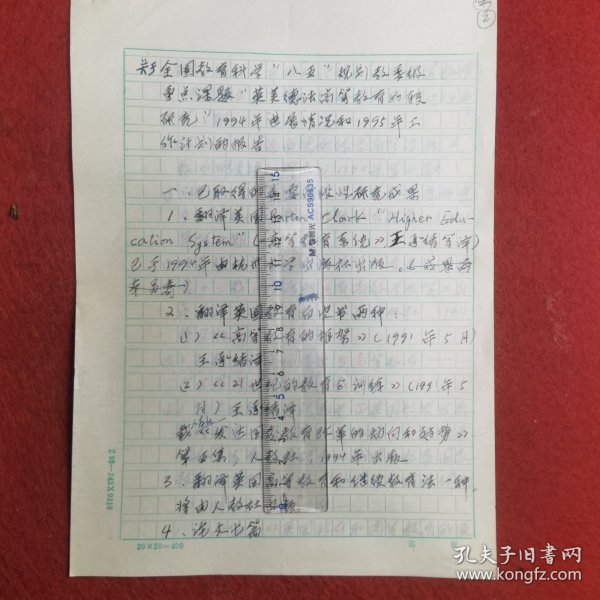 ②
关于全国教育科学“八五”规划教委级
重点课题“英美德法高等教育比较
研究”1994年进展情况和1995年工
作计划的报告
一、已取得的主要阶段性研究成果
1、翻译美国Burton Clark “Higher Edu-
cation System”(《高等教育系统》王承绪等译)
已于1994年由杭州大学出版社出版。
2、翻译英国教育白皮书两种:
(1)《高等教育的框架》(1991年5月)
王承绪译
(2)《21世纪的教育与训练》(1991年5
月)王承绪译
载《发达国家教育改革的动向和趋势》
第五集,人教社,1994年出版
3、翻译英国高等教育和继续教育法一种,
将由人教社出版
4、论文七篇
20×20=400
M&G 晨光 ACS98635
孔夫子旧书网
www.kongfz.com